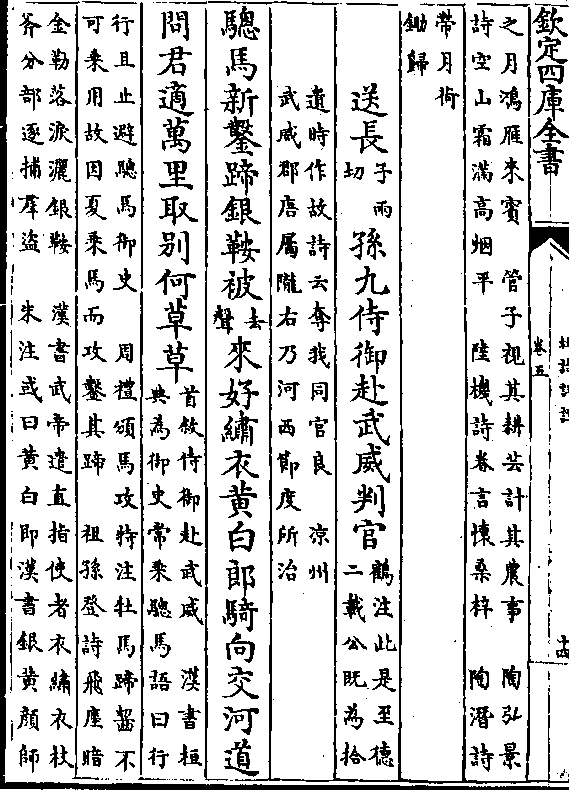 欽定四庫全書
卷五
十四
之月鴻雁來賓　管子視其耕芸計其農事　陶弘景
詩空山霜滿高烟平　陸機詩眷言懷桑梓　陶潛詩
帶月荷
鋤歸
送長子兩切孫九侍御赴武威判官鶴注此是至德二載公既為拾
遺時作故詩云奪我同官良　凉州
武威郡唐屬隴右乃河西節度所治
驄馬新鑿蹄銀鞍被去聲來好繡衣黃白郎騎向交河道
問君適萬里取别何草草首敘侍御赴武威　漢書桓典為御史常乗驄馬語曰行
行且止避驄馬御史　周禮頒馬攻特注牡馬蹄齧不
可乗用故因夏乗馬而攻鑿其蹄　祖孫登詩飛塵暗
金勒落淚灑銀鞍　漢書武帝遣直指使者衣繡衣杖
斧分部逐捕羣盜　朱注或曰黃白即漢書銀黃顔師